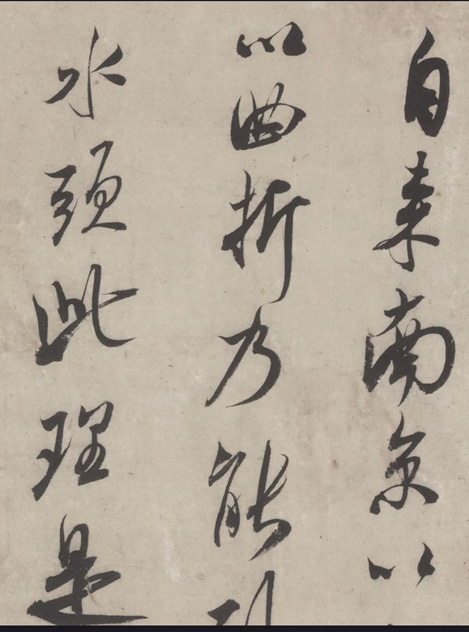 自来南京以
以曲折乃能
水頭此理是